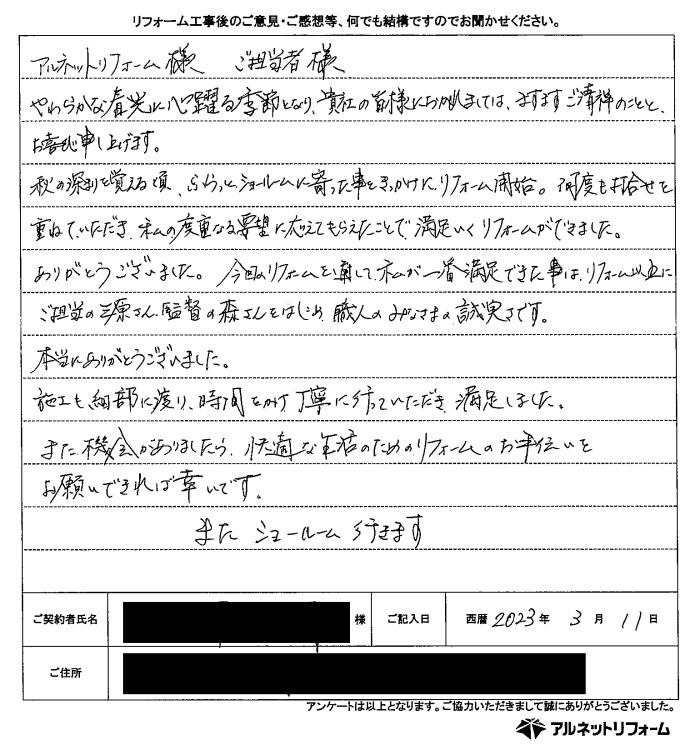 リフォーム工事後のご意見・ご感想等、何でも結構ですのでお聞かせください。
アルネットリフォーム様 ご担当者様
やわらかな春光に心躍る季節となり、貴社の皆様におかれましては、ますますご清祥のことと、
お喜び申し上げます。
秋の深まりを覚える頃、ふらっとショールームに寄った事をきっかけにリフォーム開始。何度も打合せを
重ねていただき、私の度重なる要望に応えてもらえたことで、満足いくリフォームができました。
ありがとうございました。今回のリフォームを通して、私が一番満足できた事は、リフォーム以上に
ご担当の三原さん、監督の森さんをはじめ、職人のみなさまの誠実さです。
本当にありがとうございました。
施工も、細部に渡り、時間をかけ丁寧に行っていただき、満足しました。
また、機会がありましたら、快適な生活のためのリフォームのお手伝いを
お願いできれば幸いです。
またショールーム行きます
ご契約者氏名 様 ご記入日 西暦 2023年 3月 11日
ご住所
アンケートは以上となります。ご協力いただきまして誠にありがとうございました。
アルネットリフォーム